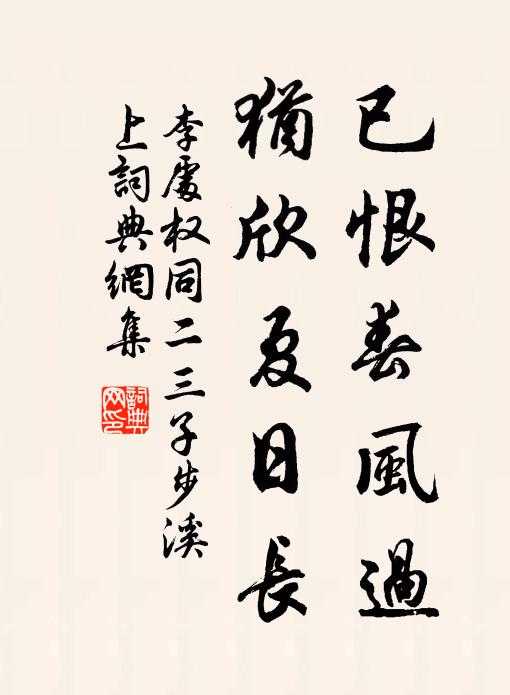 已恨春風過
猶欣夏日長
李處权同二三子步溪
上詞典網集
詞典
网印